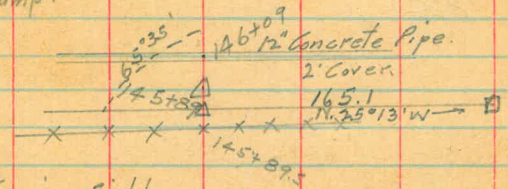 65°35'
146+09
12" Concrete Pipe.
2' Cover.
145+89
165.1
N. 25°13' W
145+89.5